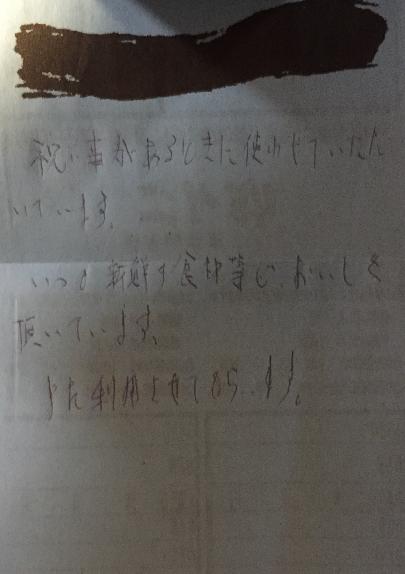 祝い事があるときに使わせていただ
いています。
いつも新鮮な食材等で、おいしく
頂いています。
また利用させてもらいます。